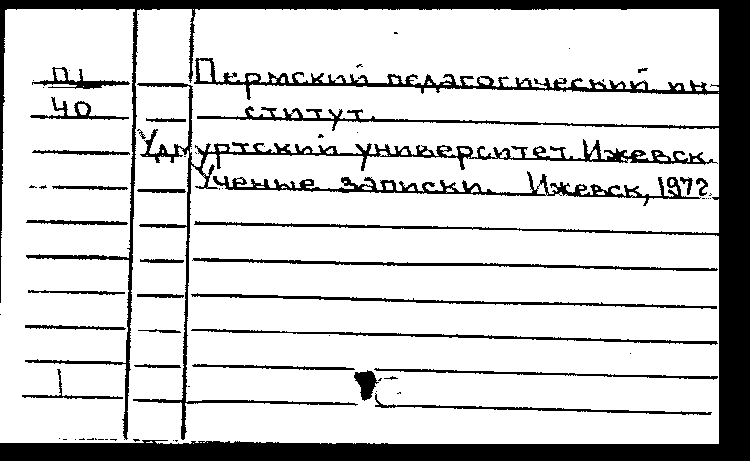 П1 Пермский педагогический ин-
40 ститут.
Удмуртский университет. Ижевск.
Ученые записки. Ижевск, 1972
1